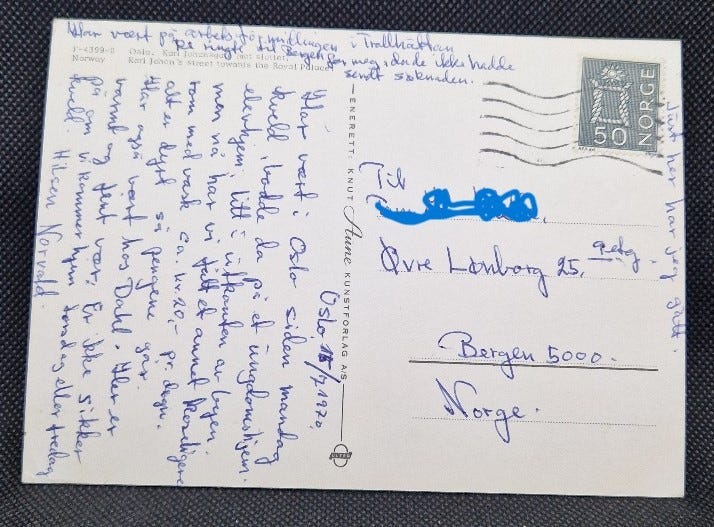 Har vært på arbeidsformidlingen i Trollhättan
De ringte til Bergen for meg, da de ikke hadde
sendt søknaden.
Oslo. Karl Johansgate mot slottet.
Norway Karl Johan's street towards the Royal Palace
Oslo, 15/7 1970.
Har vært i Oslo siden mandag
kveld, bodde da på et ungdomshjem.
elevhjem, litt i utkanten av byen.
men nå har vi fått et annet koseligere
rom med vask ca. kr. 20,- pr. døgn.
alt er dyrt så pengene går.
Har også vært hos Dahl. Her er
varmt og fint vær. Er ikke sikker
på om vi kommer hjem torsdag eller fredag
kveld. Hilsen Norvald.
ENERETT: KNUT Aune KUNSTFORLAG A/S
NORGE
50
Til
Øvre Lønborg 25, 2.etg.
Bergen 5000.
Norge.
Just her har jeg gått.